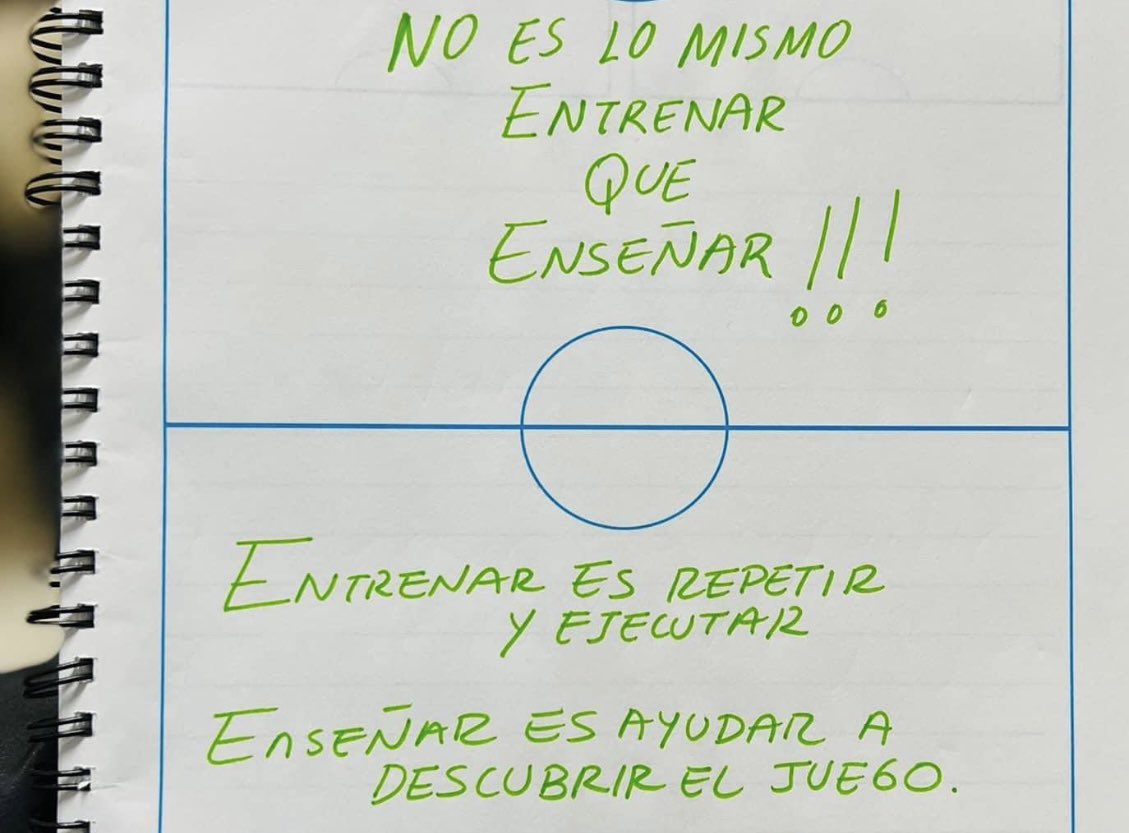 NO ES LO MISMO
ENTRENAR
QUE
ENSEÑAR !!!
ENTRENAR ES REPETIR
Y EJECUTAR
ENSEÑAR ES AYUDAR A
DESCUBRIR EL JUEGO.